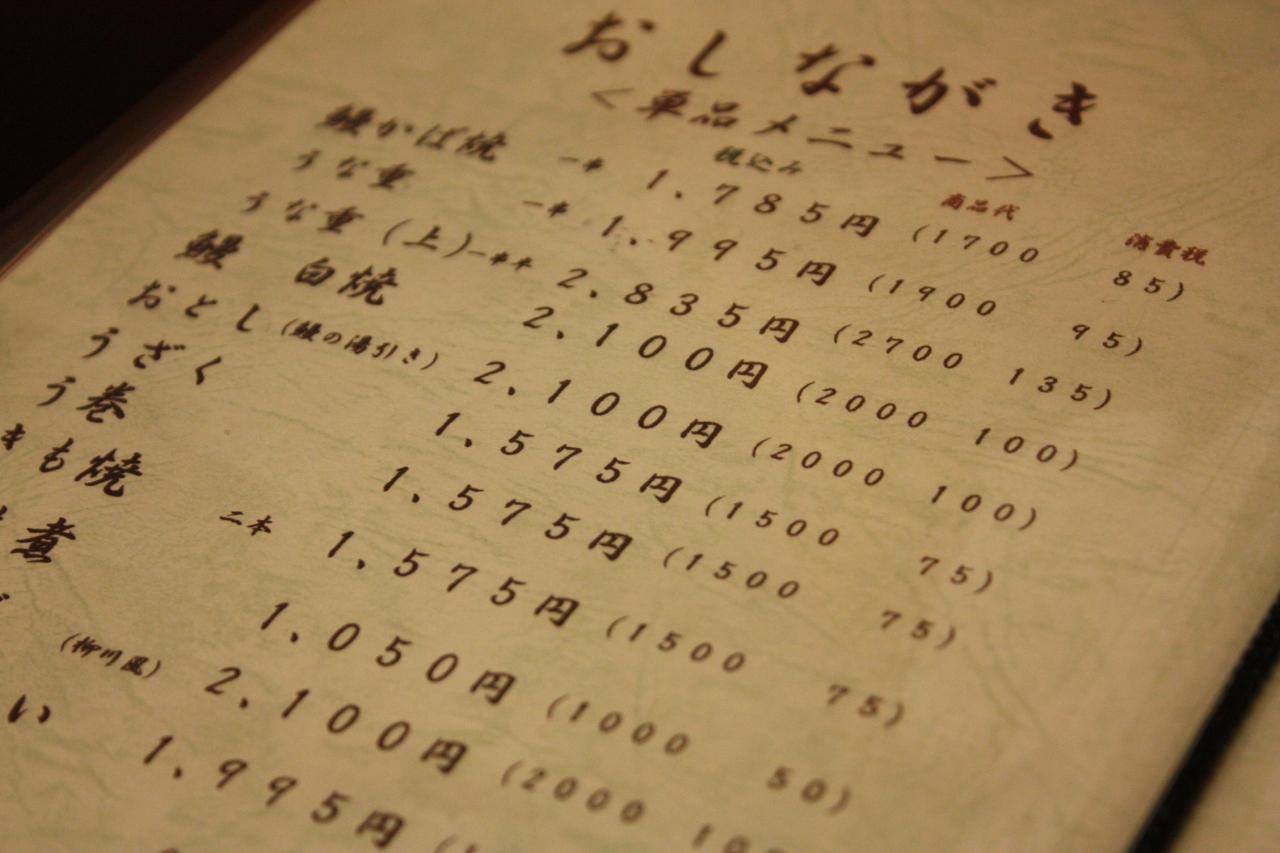 おしながき
<単品メニュー>
税込み 商品代 消費税
鰻かば焼 一本 1.785円 (1700 85)
うな重 一本 1.995円 (1900 95)
うな重(上)一本 2.835円 (2700 135)
鰻 白焼 2.100円 (2000 100)
おとし(鰻の湯引き) 2.100円 (2000 100)
うざく 1.575円 (1500 75)
う巻 1.575円 (1500 75)
きも焼 二本 1.575円 (1500 75)
煮 1.050円 (1000 50)
(柳川風) 2.100円 (2000
い 1.995円